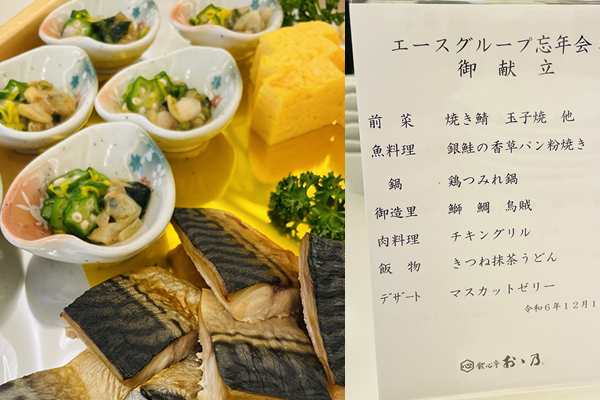 エースグループ忘年会
御献立
前菜 焼き鯖 玉子焼 他
魚料理 銀鮭の香草パン粉焼き
鍋 鶏つみれ鍋
御造里 鰤 鯛 烏賊
肉料理 チキングリル
飯物 きつね抹茶うどん
デザート マスカットゼリー
令和6年12月1
食心亭 おゝ乃